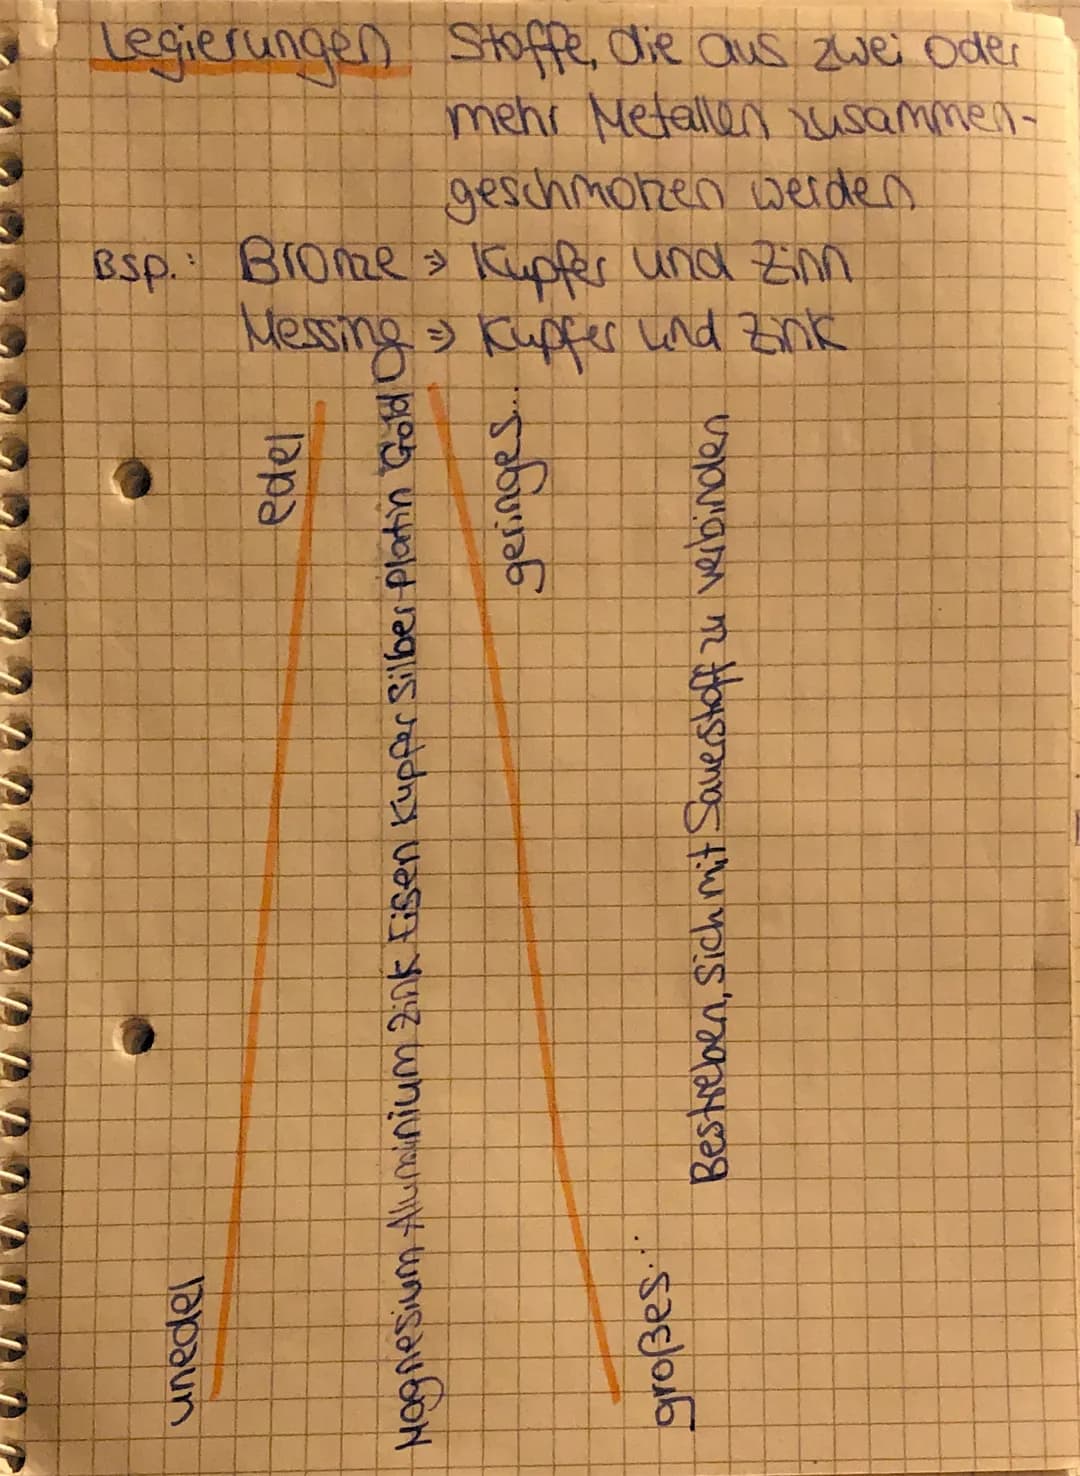 Legierungen Stoffe, die aus zwei oder
mehr Metallen zusammen-
geschmolzen werden
Bsp.: Bronze => Kupfer und Zinn
Messing => Kupfer und Zink
unedel edel
Magnesium Aluminium Zink Eisen Kupfer Silber Platin Gold
großes... geringes...
Bestreben, sich mit Sauerstoff zu verbinden